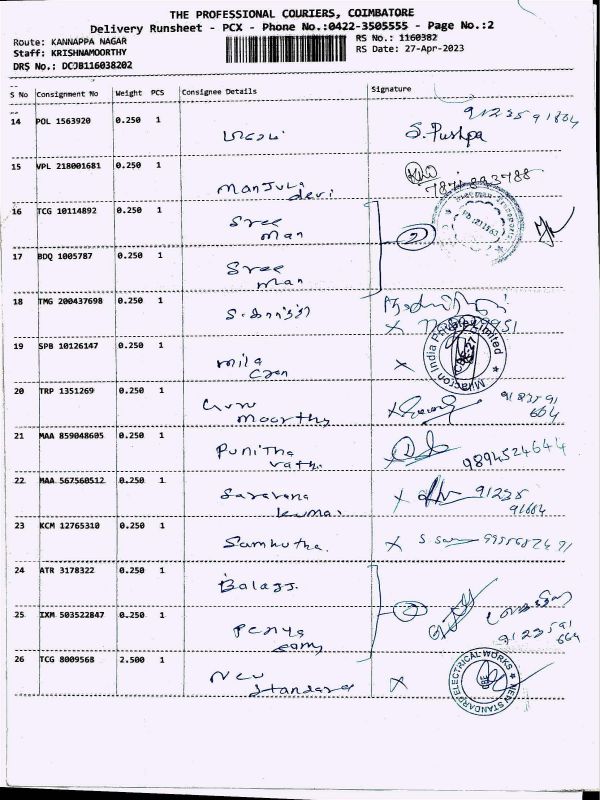 THE PROFESSIONAL COURIERS, COIMBATORE
Delivery Runsheet - PCX - Phone No.:0422-3505555 - Page No.:2
Route: KANNAPPA NAGAR
RS No.: 1160382
Staff: KRISHNAMOORTHY
RS Date: 27-Apr-2023
DRS No.: DCJB116038202
S No Consignment No Weight PCS Consignee Details Signature
14 POL 1563920 0.250 1 S. Pushpa
15 VPL 218001681 0.250 1 Manjula devi
16 TCG 10114892 0.250 1 Sree man
17 BDQ 1005787 0.250 1 Sree man
18 TMG 200437698 0.250 1
19 SPB 10126147 0.250 1 mila Cron
Milacron India Private Limited
20 TRP 1351269 0.250 1 moorthy
21 MAA 859048605 0.250 1 Punitha vathi 9894524644
22 MAA 567560512 0.250 1 Saravana kumar 91235 91664
23 KCM 12765310 0.250 1
24 ATR 3178322 0.250 1 Balaji
25 IXM 503522847 0.250 1
91235 91 664
26 TCG 8009568 2.500 1 New Standard
NEW STANDARD ELECTRICAL WORKS
CBE